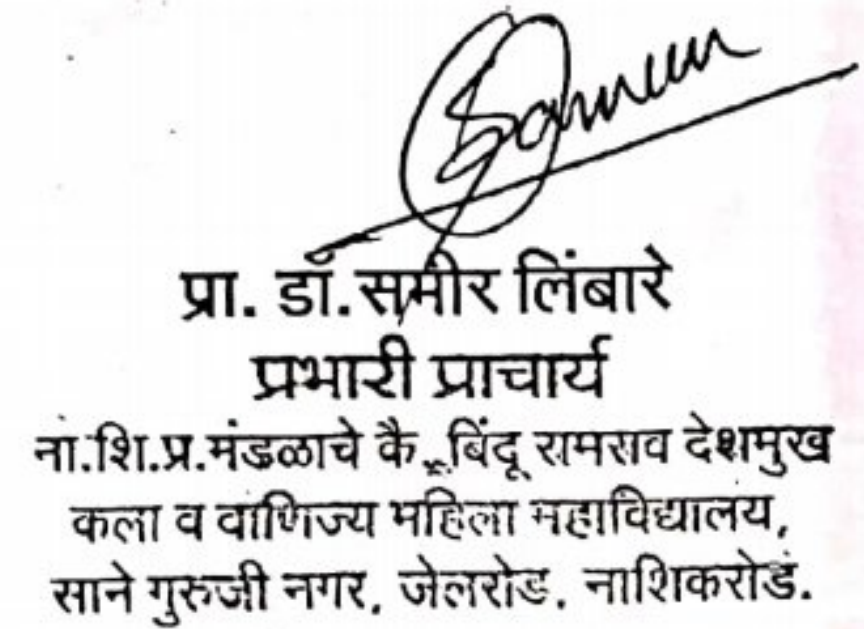 Sameer
प्रा. डॉ.समीर लिंबारे
प्रभारी प्राचार्य
ना.शि.प्र.मंडळाचे कै. बिंदू रामराव देशमुख
कला व वाणिज्य महिला महाविद्यालय,
साने गुरुजी नगर, जेलरोड, नाशिकरोड.